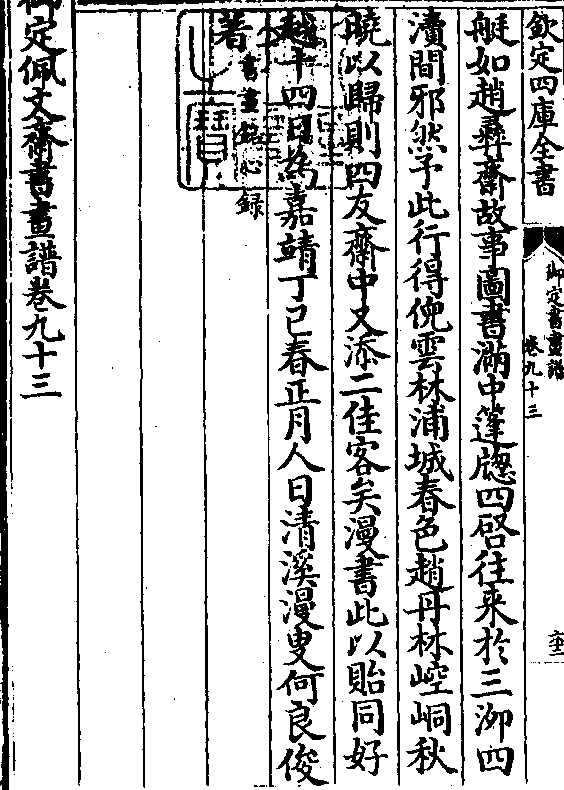 欽定四庫全書
御定書畫譜
卷九十三
艇如趙彝齋故事圖書滿中篷牕四啓往来於三泖四
瀆間邪然予此行得倪雲林浦城春色趙丹林崆峒秋
曉以歸則四友齋中又添二佳客矣漫書此以貽同好
越十四日為嘉靖丁巳春正月人日清溪漫叟何良俊
著
書畫銘心録
御定佩文齋書畫譜卷九十三